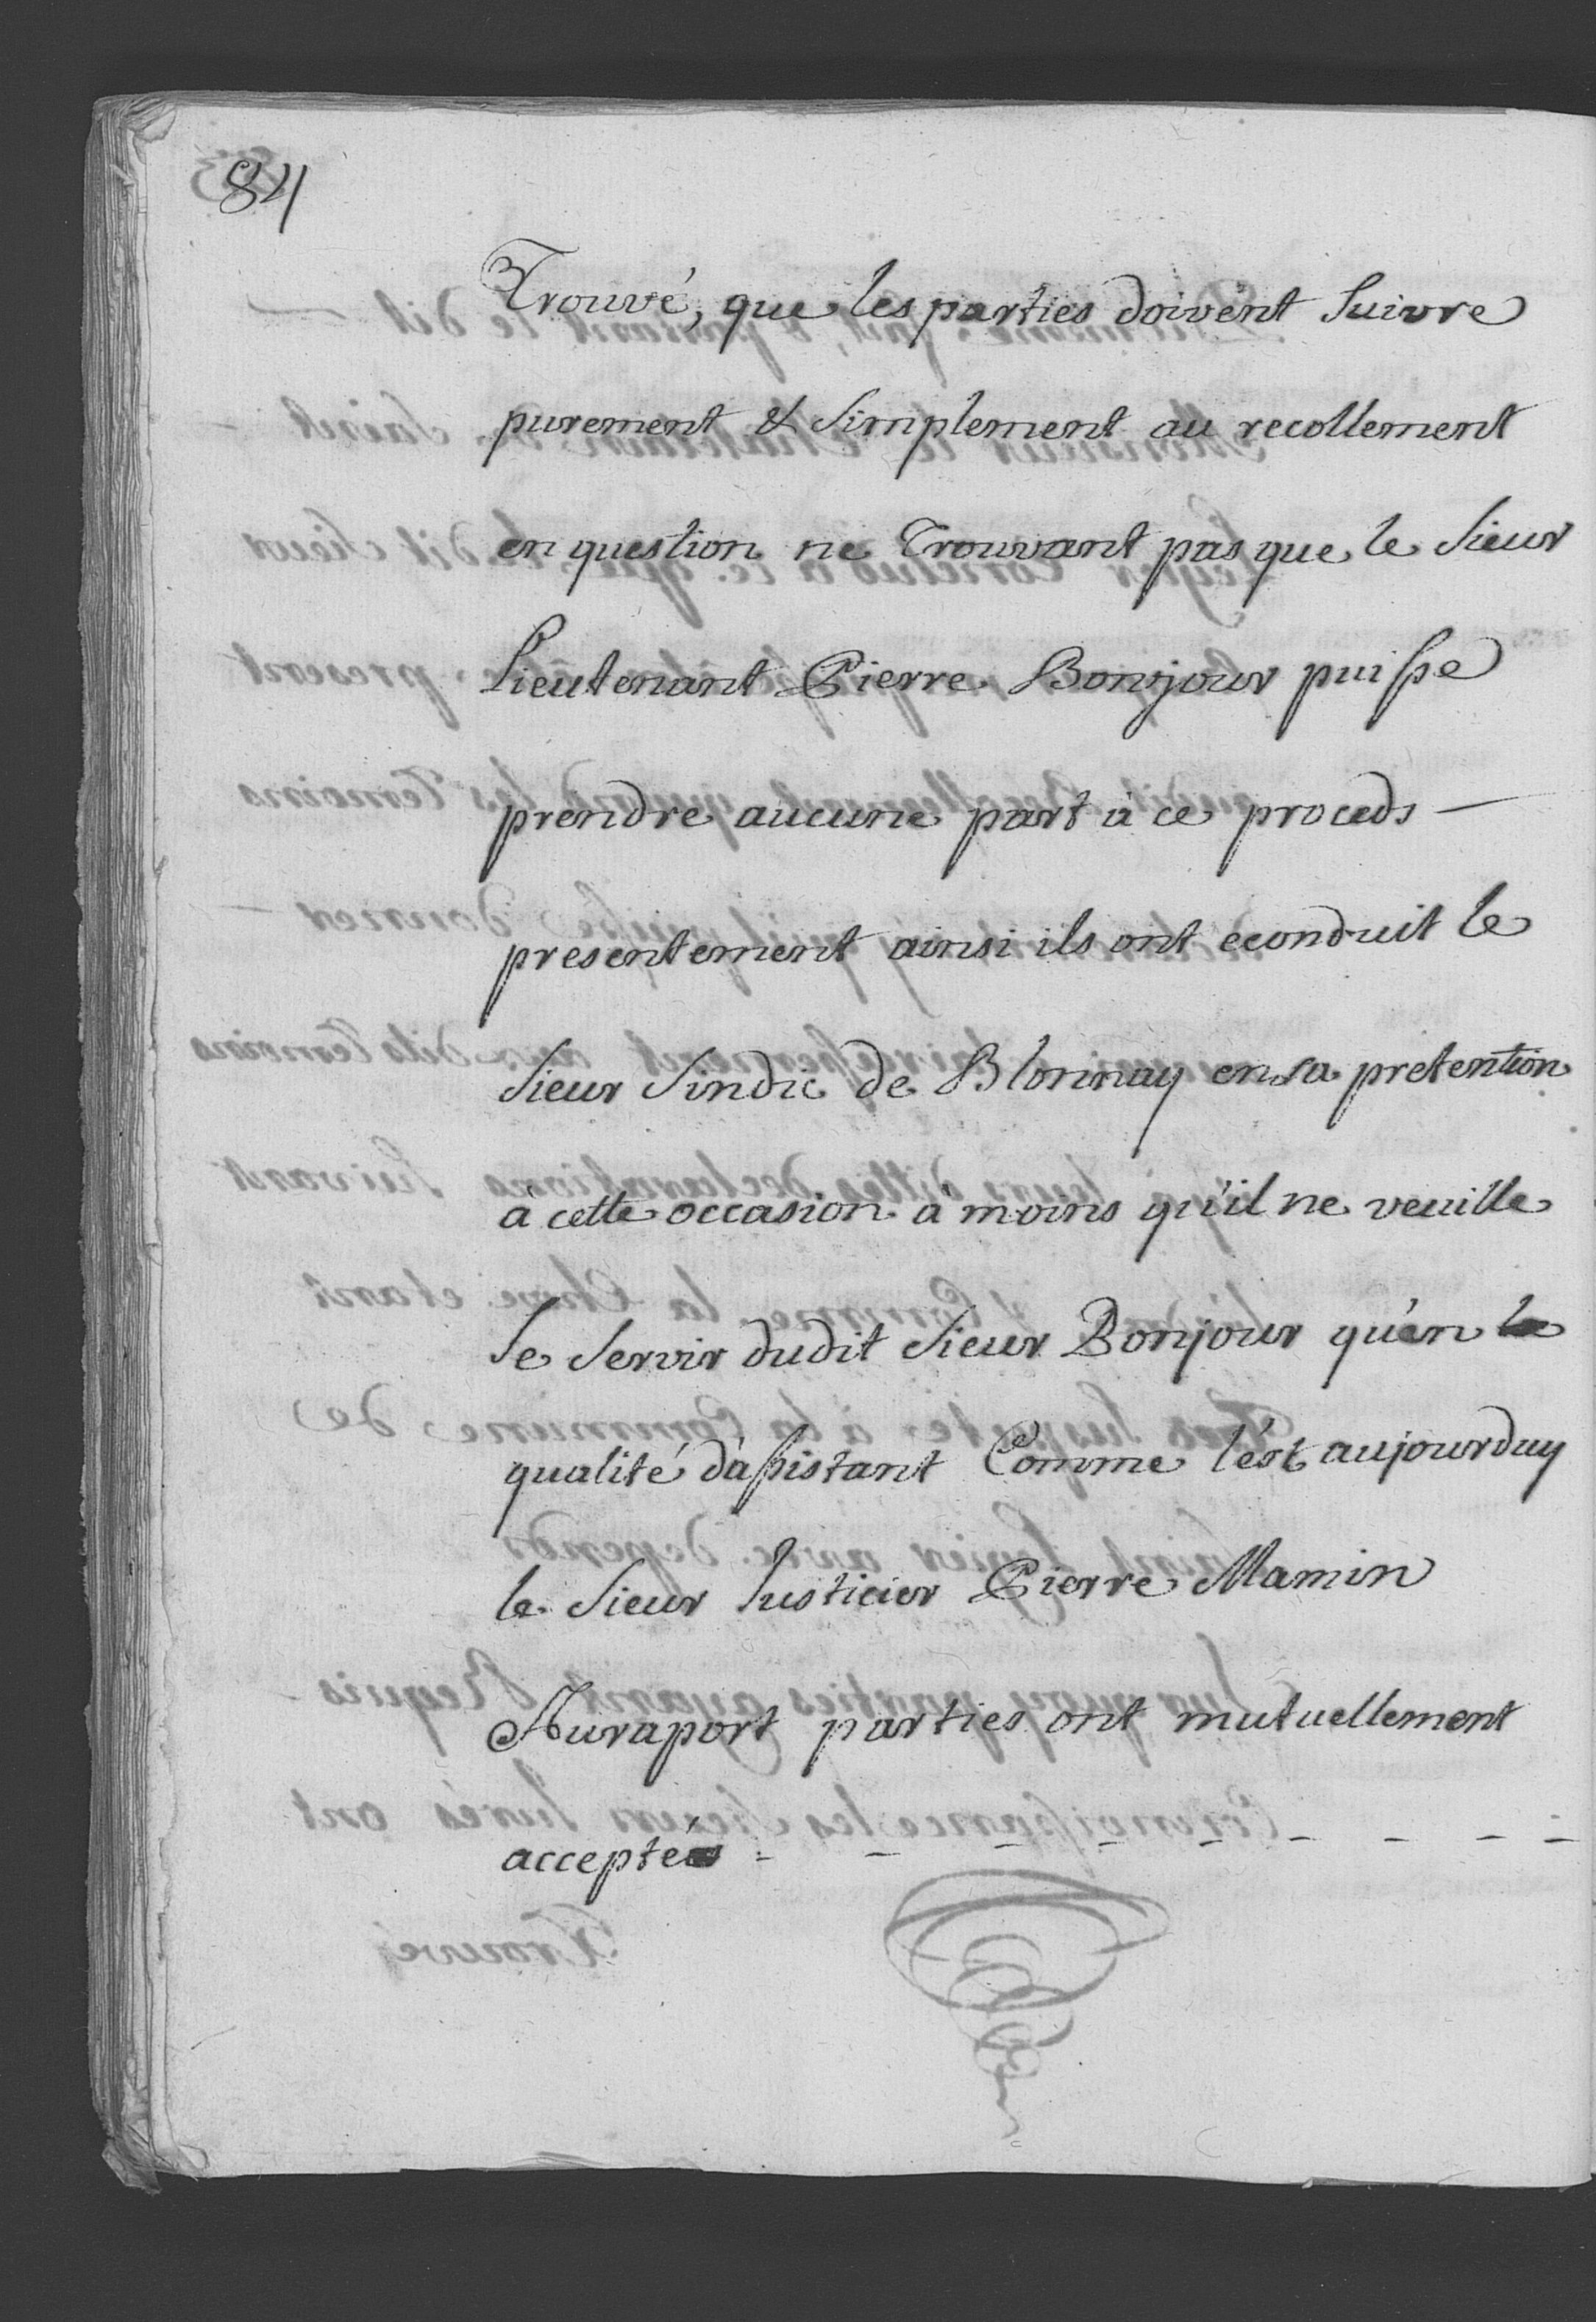 84
Trouvé, que les parties doivent Suivre
purement & Simplement au recollement
en question ne Trouvant pas que le Sieur
Lieutenant Pierre Bonjour puisse
prendre aucune part à ce proceds —
presentement ainsi ils ont econduit le
Sieur Sindic de Blonnay en sa pretention
à cette occasion à moins qu'il ne veuille
Se Servir dudit Sieur Bonjour qu'en
qualité d'assistant Comme l'est aujourduy
le Sieur Justicier Pierre Mamin
Auraport parties ont mutuellement
accepté